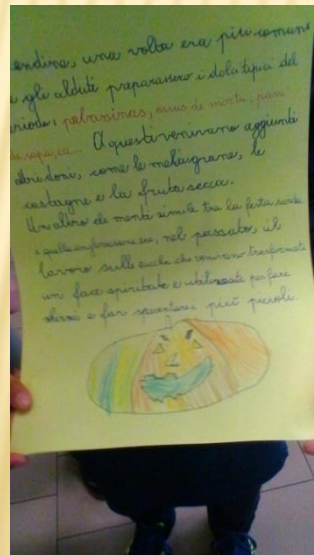 endine, una volta era più comune
gli alduti preparassero i dolci tipici del
pabassinas, ossus de mortu, pani
de sapa, ca... A questi venivano aggiunti
doni, come le melagrane, le
castagne e la fruta secca.
Un altro ele menti simile tra la festa sarda
e quella anglosassone era, nel passato, il
lavoro sulle zucche che venivano trasformate
un face spiritate e utilizzate per fare
e far spaventare i più piccoli.